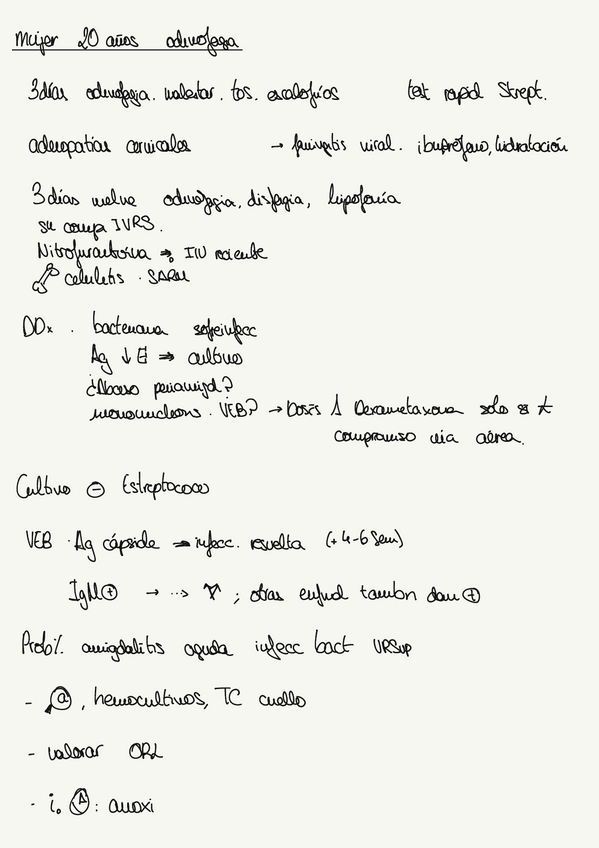 Mujer 20 años odinofagia
3 días odinofagia. malestar. tos. escalofríos test rapid Strept.
adenopatías cervicales → faringitis viral. ibuprofeno, hidratación
3 días vuelve odinofagia, disfagia, hipofonía
su compa IVRS.
Nitrofurantoína → ITU reciente
celulitis. SARM
DDx. bacteriana sobreinfecc
Ag ↓ E ⇒ cultivo
¿Absceso periamigd?
mononucleos. VEB? → Dosis 1 Dexametaxona solo si
compromiso vía aérea.
Cultivo ⊖ Estreptococo
VEB · Ag cápside → infecc. resuelta (+ 4-6 sem)
IgM ⊕ → ⇢ Y ; otras enfmd tambn dan ⊕
Prob%. amigdalitis aguda infecc bact VRSup
- @, hemocultivos, TC cuello
- valorar ORL
- i. Ⓐ: amoxi